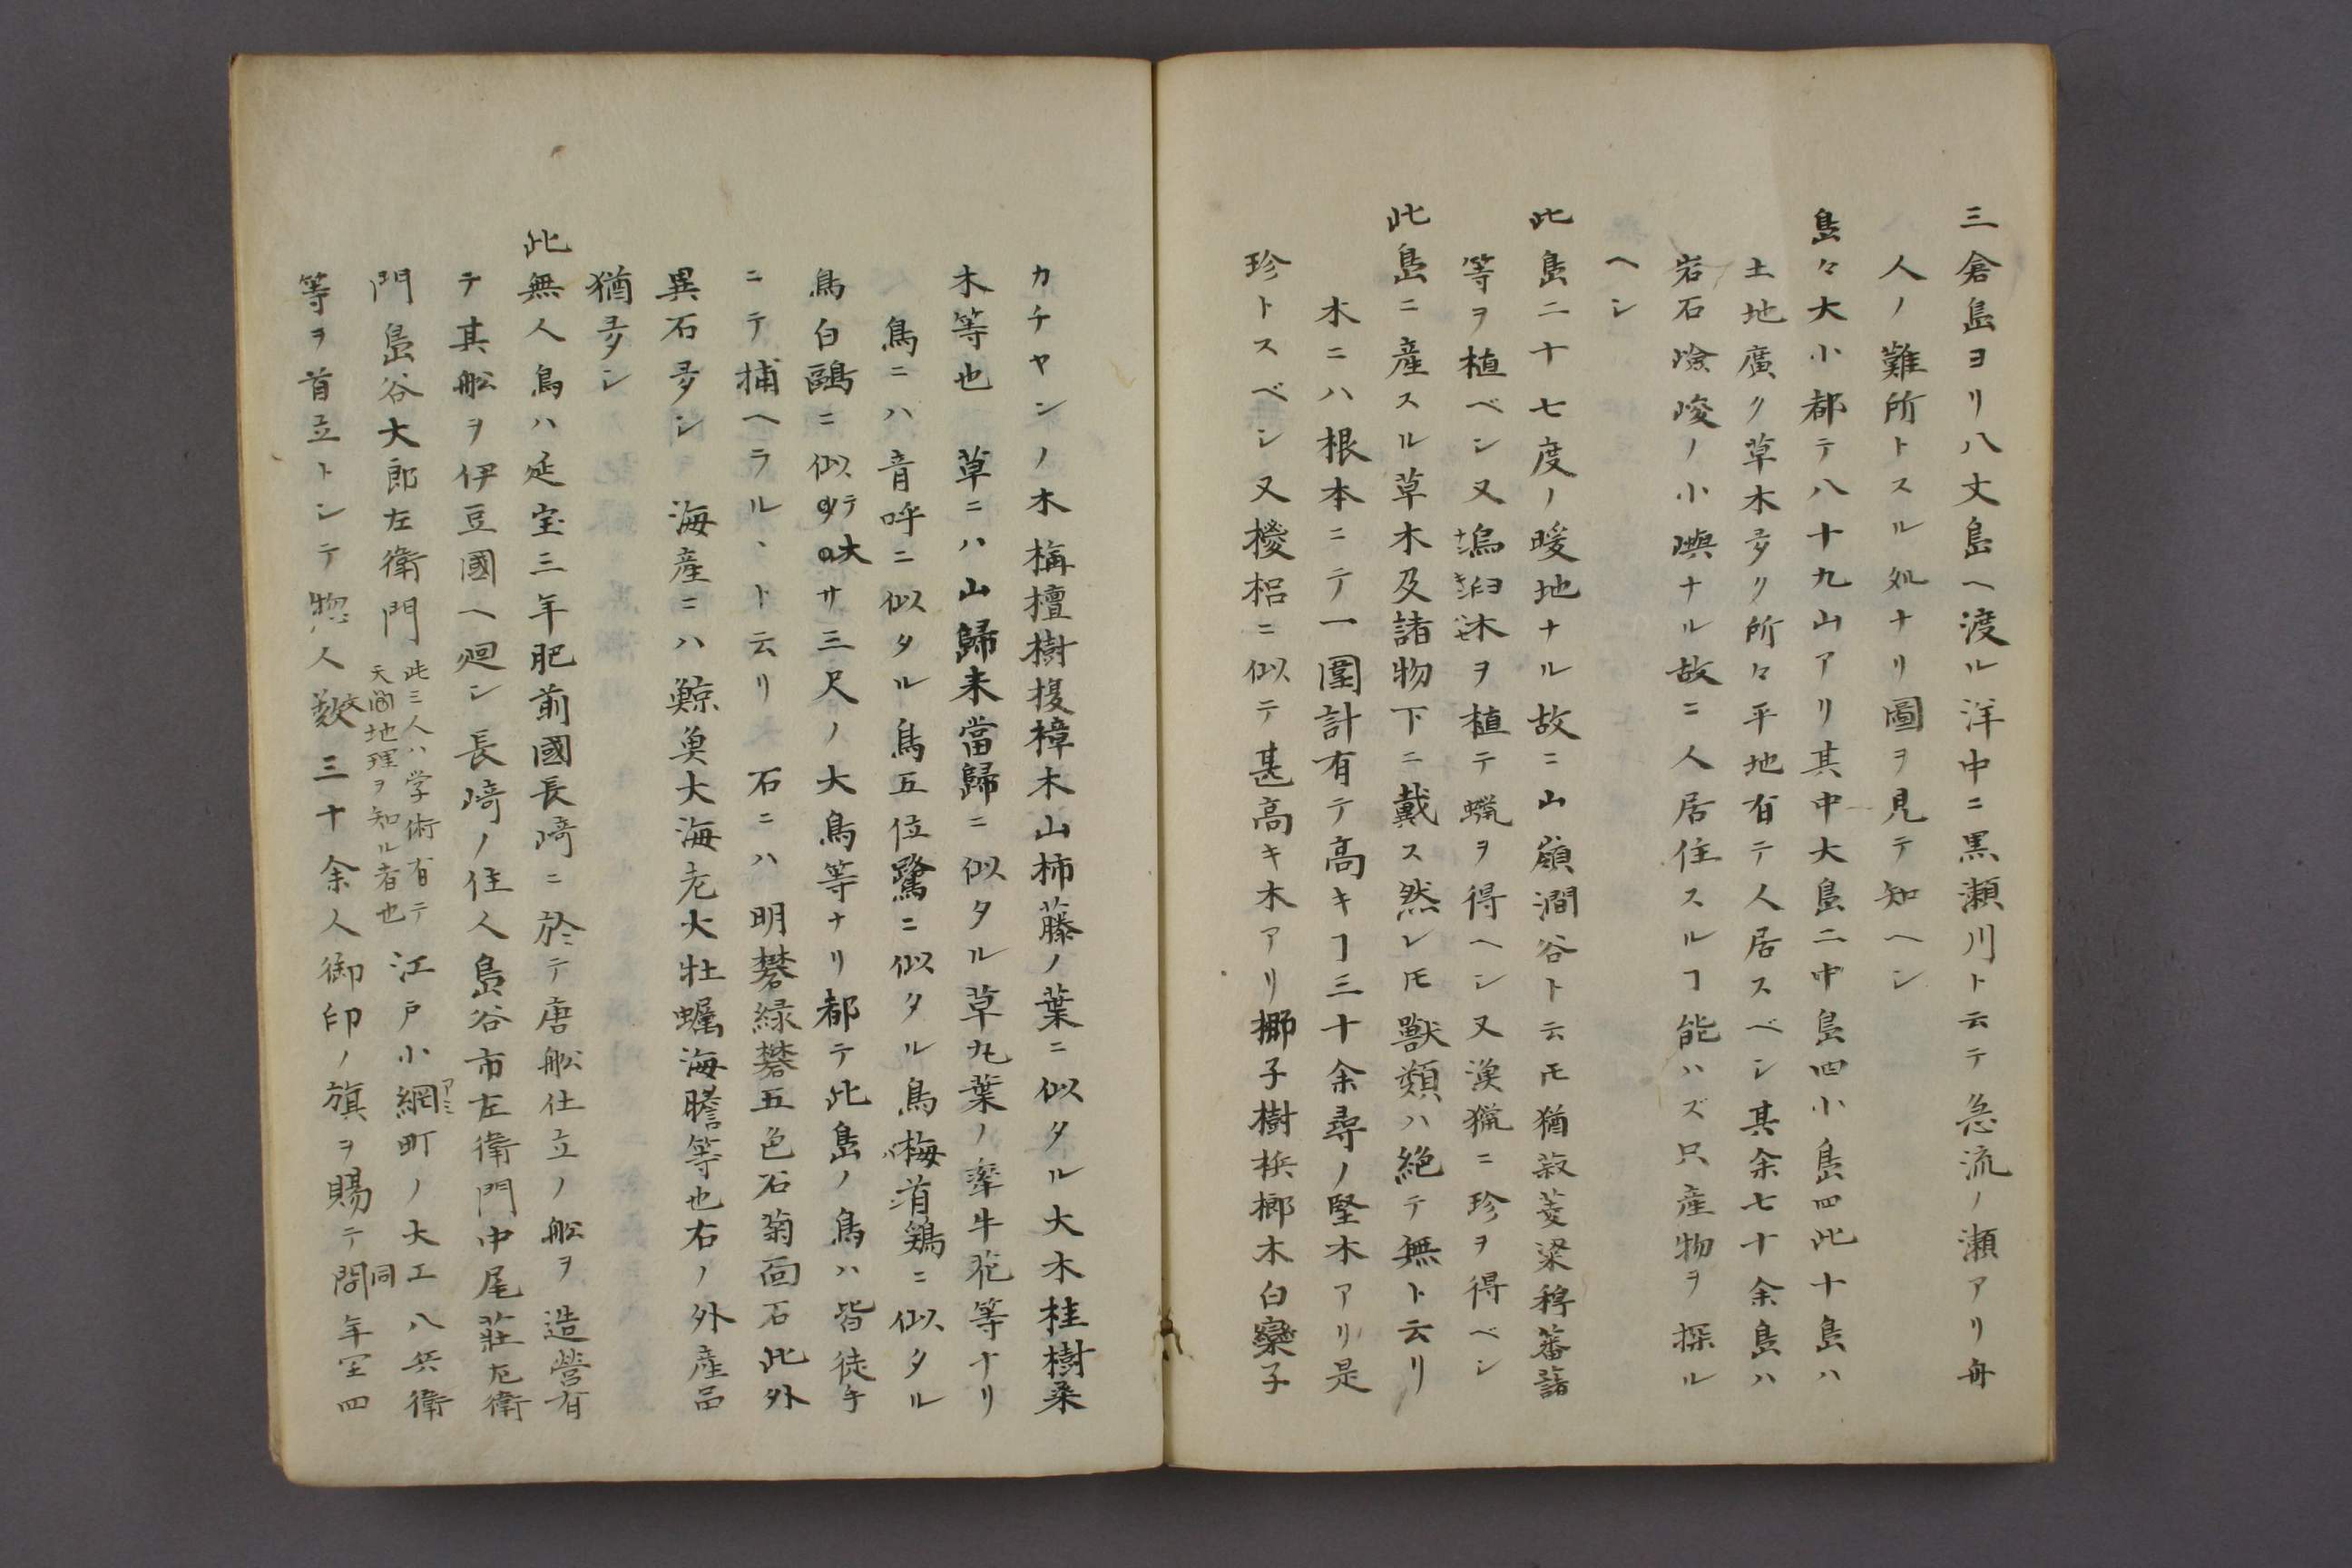 三倉島ヨリ八丈島ヘ渡ル洋中ニ黒瀬川ト云テ急流ノ瀬アリ舟
人ノ難所トスル処ナリ圖ヲ見テ知ヘシ
島々大小都テ八十九山アリ其中大島二中島四小島四此十島ハ
土地廣ク草木多ク所々平地有テ人居スベシ其余七十余島ハ
岩石嶮峻ノ小嶼ナル故ニ人居住スルヿ能ハズ只産物ヲ採ル
ヘシ
此島二十七度ノ暖地ナル故ニ山嶺澗谷ト云𪜈猶菽麦粱稗蕃藷
等ヲ植ベシ又烏臼木ヲ植テ蝋ヲ得ヘシ又漁猟ニ珍ヲ得ベシ
此島ニ産スル草木及諸物下ニ戴ス然レ𪜈獣類ハ絶テ無ト云リ
木ニハ根本ニテ一圍計有テ高キヿ三十余尋ノ堅木アリ是
珍トスベシ又椶梠ニ似テ甚高キ木アリ椰子樹梹榔木白欒子
カチヤンノ木栴檀樹榎樟木山柿藤ノ葉ニ似タル大木桂樹桑
木等也 草ニハ山歸来當歸ニ似タル草丸葉ノ牽牛花等ナリ
鳥ニハ音呼ニ似タル鳥五位鷺ニ似タル鳥梅首鶏ニ似タル
鳥白鷗ニ似テ大サ三尺ノ大鳥等ナリ都テ此島ノ鳥ハ皆徒手
ニテ捕ヘラルヽト云リ 石ニハ 明礬緑礬五色石菊面石此外
異石多シ 海産ニハ鯨魚大海老大牡蠣海膽等也右ノ外産品
猶多シ
此無人島ハ延宝三年肥前國長﨑ニ於テ唐舩仕立ノ舩ヲ造營有
テ其舩ヲ伊豆國ヘ廻シ長﨑ノ住人島谷市左衛門中尾莊左衛
門 島谷大郎左衛門 此三人ハ学術有テ天尚地理ヲ知ル者也 江戸小網アミ町ノ大工八兵衛
等ヲ首立トシテ惣人数三十余人御印ノ旗ヲ賜テ同年閏四